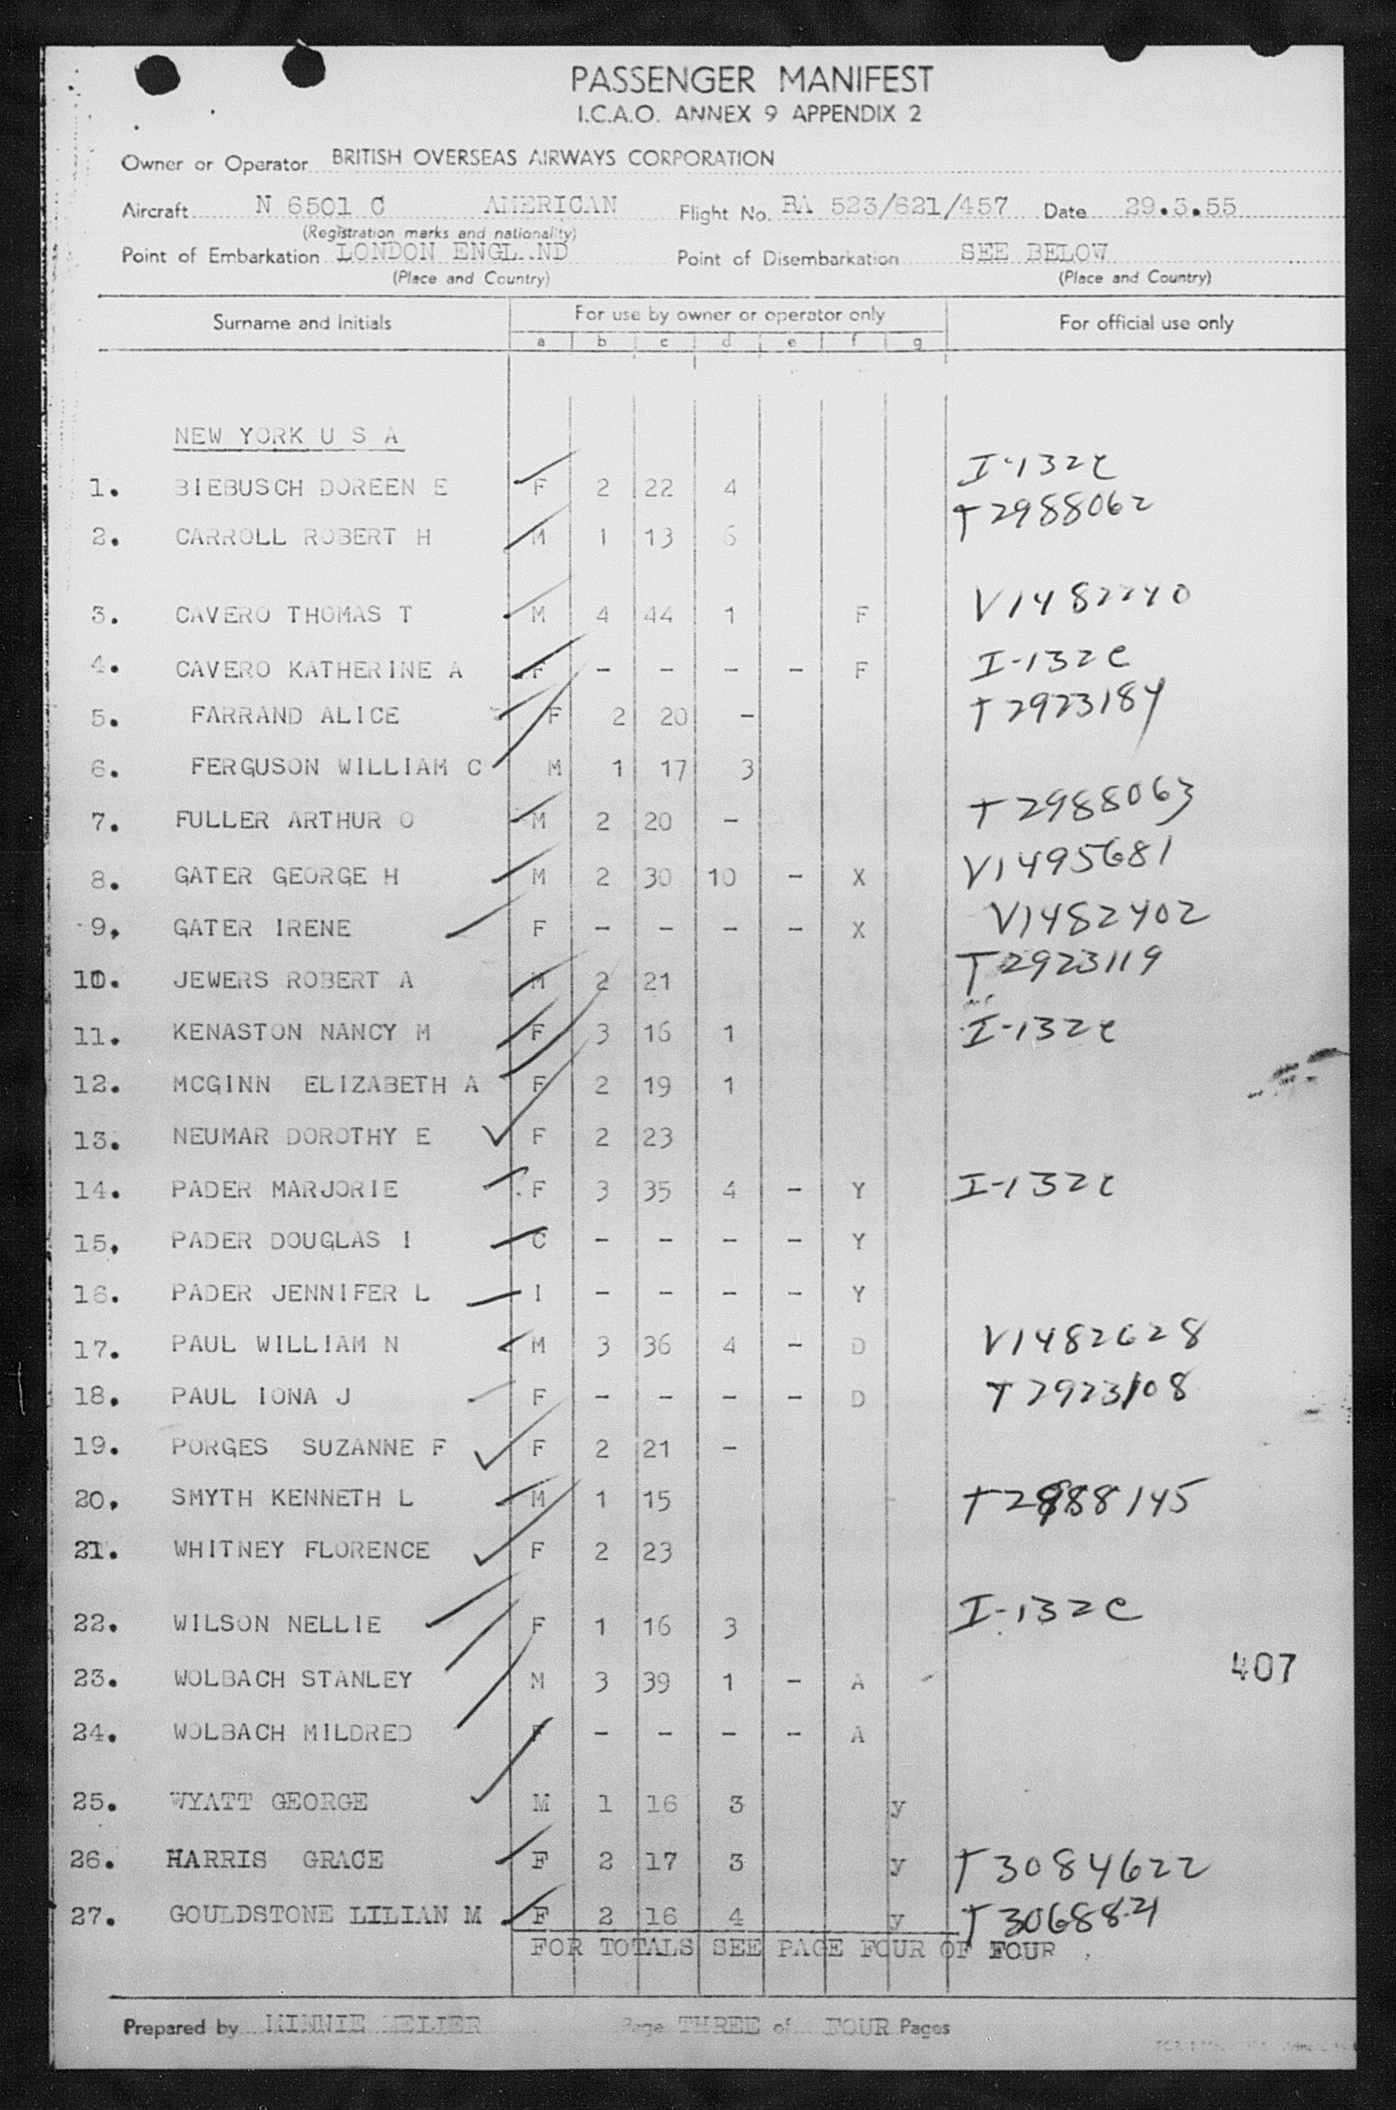 PASSENGER MANIFEST
I.C.A.O. ANNEX 9 APPENDIX 2
Owner or Operator BRITISH OVERSEAS AIRWAYS CORPORATION
Aircraft N 6501 C AMERICAN Flight No. BA 523/621/457 Date 29.3.55
(Registration marks and nationality)
Point of Embarkation LONDON ENGL..ND Point of Disembarkation SEE BELOW
(Place and Country) (Place and Country)
Surname and Initials For use by owner or operator only For official use only
a b c d e f g
NEW YORK U S A
I-132c
1. BIEBUSCH DOREEN E F 2 22 4
T2988062
2. CARROLL ROBERT H M 1 13 6
3. CAVERO THOMAS T M 4 44 1 F V1482240
4. CAVERO KATHERINE A F - - - - F I-132c
5. FARRAND ALICE F 2 20 - T2923184
6. FERGUSON WILLIAM C M 1 17 3
7. FULLER ARTHUR O M 2 20 - T2988063
8. GATER GEORGE H M 2 30 10 - X V1495681
9. GATER IRENE F - - - - X V1482402
10. JEWERS ROBERT A M 2 21 T2923119
11. KENASTON NANCY M F 3 16 1 I-132c
12. MCGINN ELIZABETH A F 2 19 1
13. NEUMAR DOROTHY E F 2 23
14. PADER MARJORIE F 3 35 4 - Y I-132c
15. PADER DOUGLAS I C - - - - Y
16. PADER JENNIFER L I - - - - Y
17. PAUL WILLIAM N M 3 36 4 - D V1482628
18. PAUL IONA J F - - - - D T2923108
19. PORGES SUZANNE F F 2 21 -
20. SMYTH KENNETH L M 1 15 T2988145
21. WHITNEY FLORENCE F 2 23
22. WILSON NELLIE F 1 16 3 I-132c
23. WOLBACH STANLEY M 3 39 1 - A 407
24. WOLBACH MILDRED F - - - - A
25. WYATT GEORGE M 1 16 3 y
26. HARRIS GRACE F 2 17 3 y T3084622
27. GOULDSTONE LILIAN M F 2 16 4 y
FOR TOTALS SEE PAGE FOUR OF FOUR
Prepared by MINNIE Page THREE of FOUR Pages